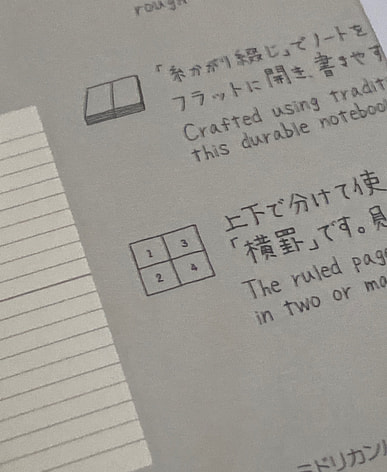 rough
「糸かがり綴じ」でノートを
フラットに開き、書きやす
Crafted using tradit
this durable notebook
上下で分けて使
「横罫」です。見
The ruled page
in two or ma
1 3
2 4
ミドリカンパ